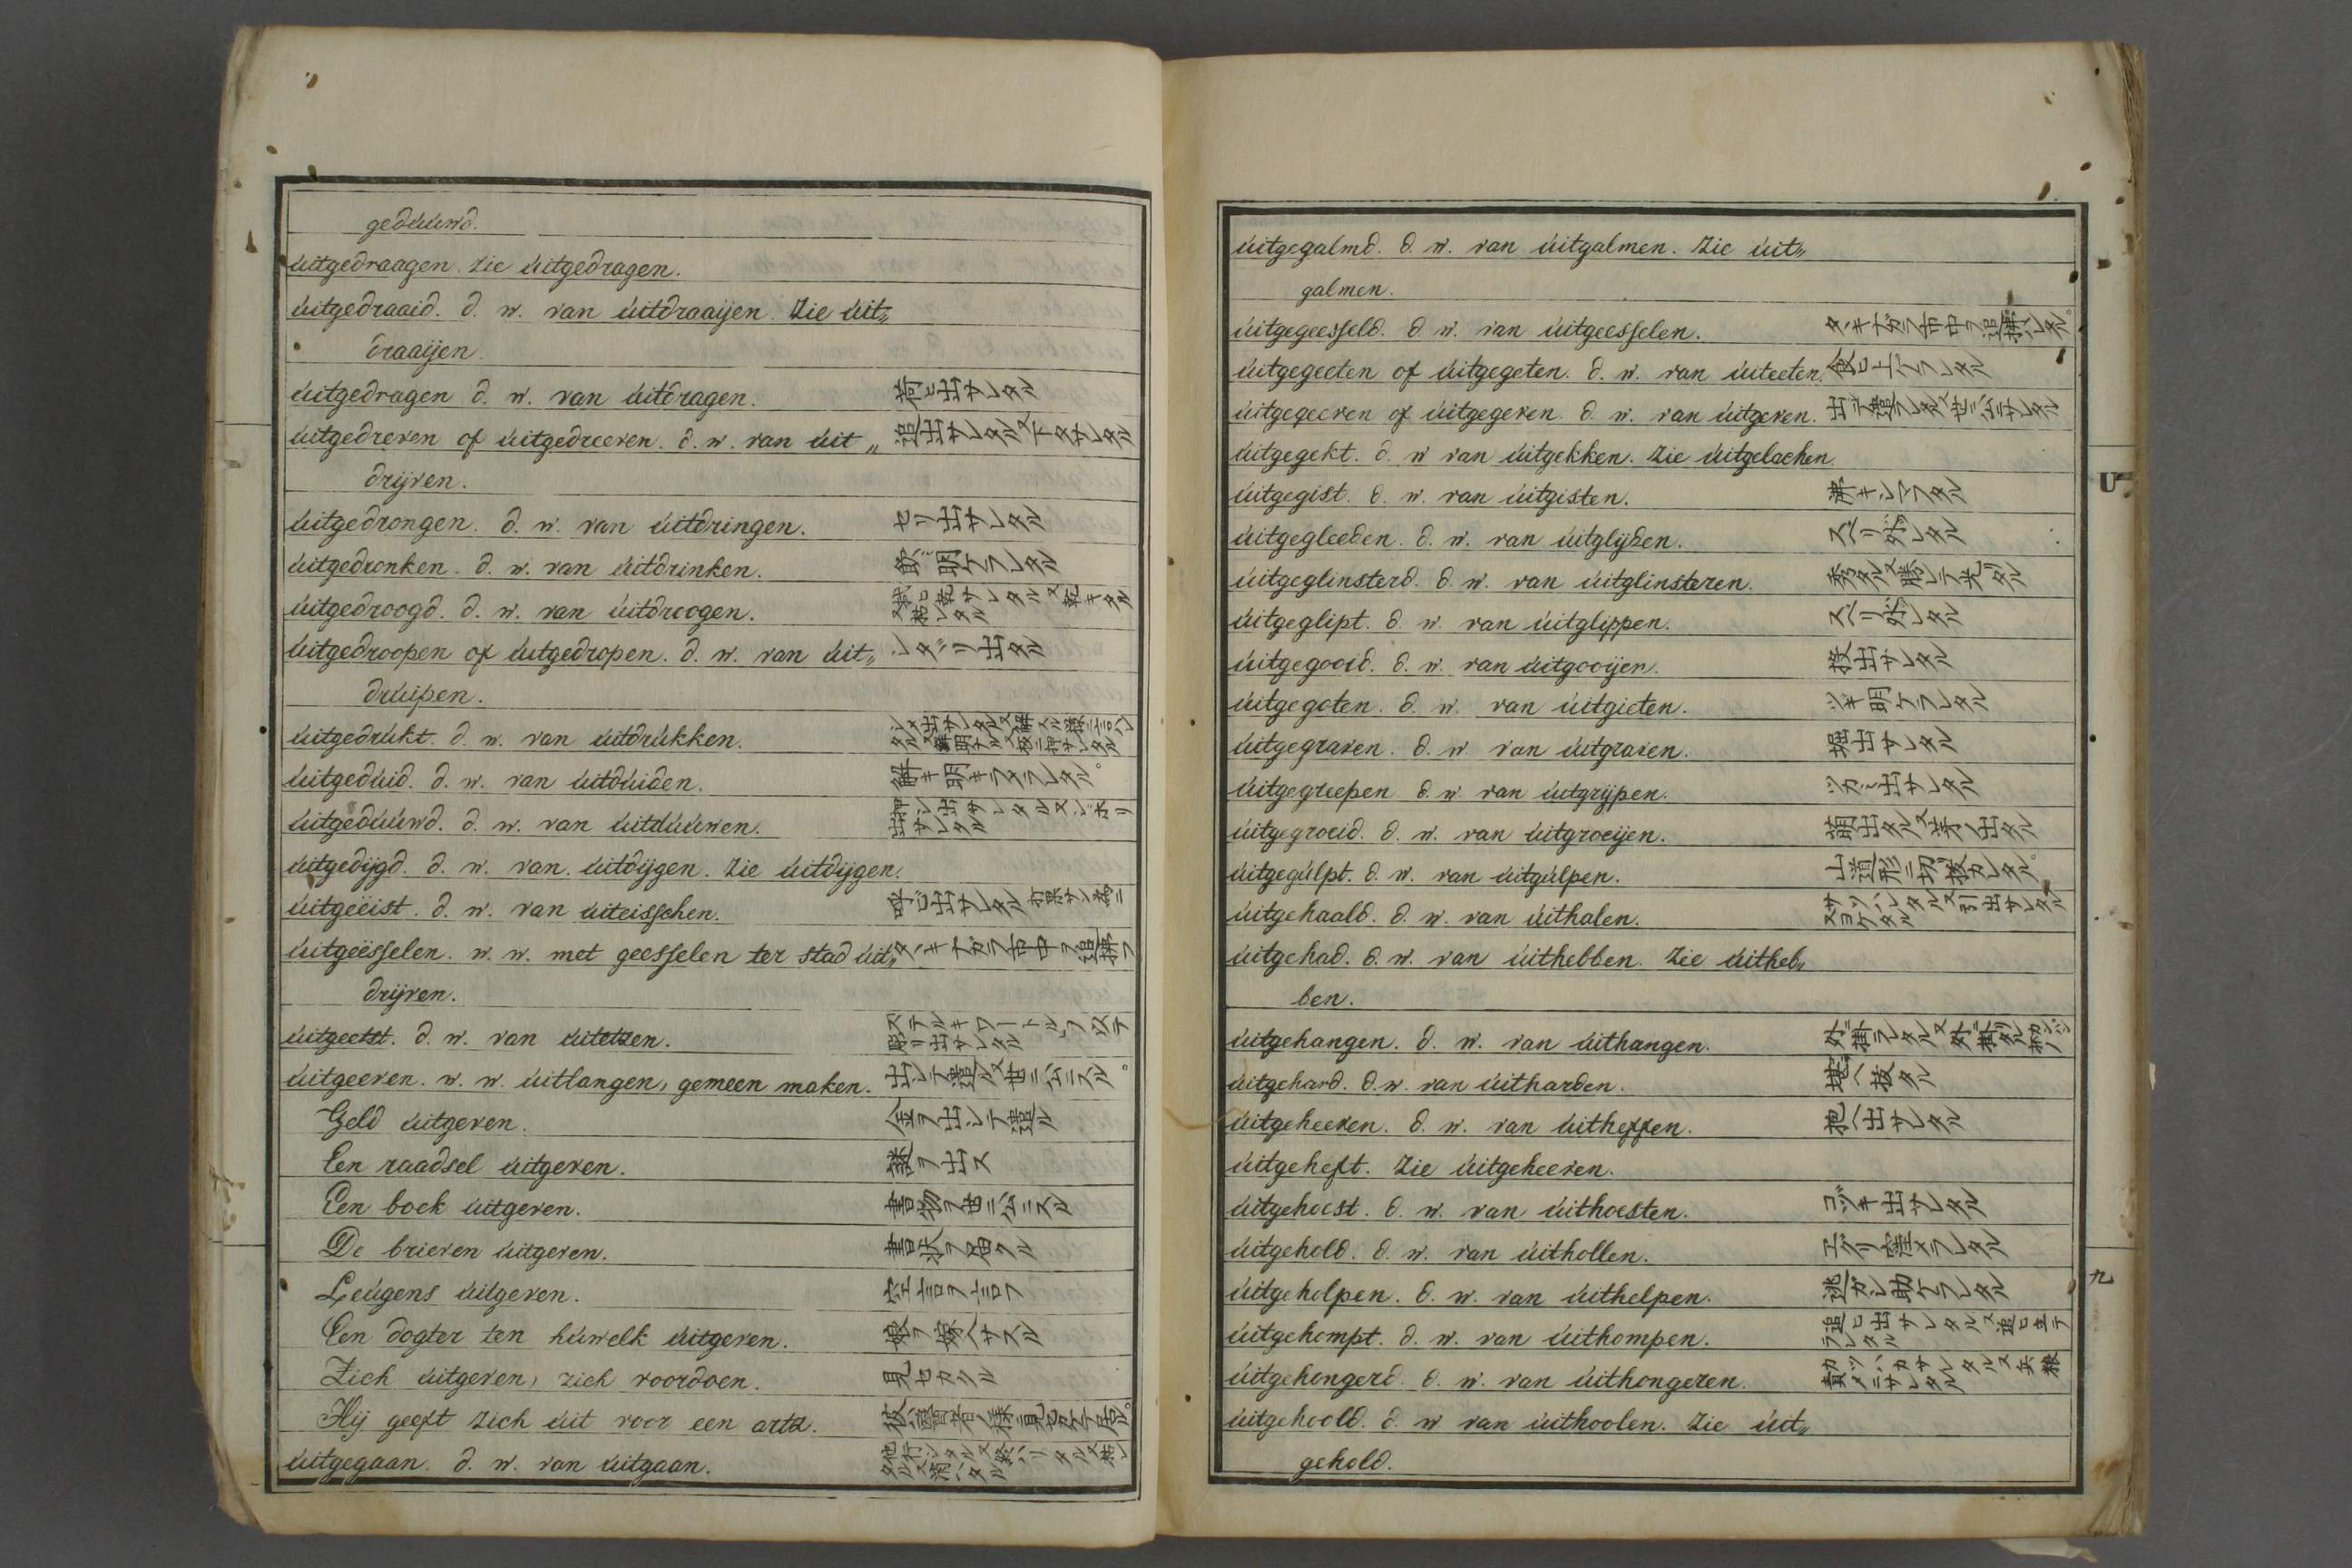 geduuwd.
uitgedraagen. Zie uitgedragen.
uitgedraaid. d. w. van uitdraaijen. Zie uit„
draaijen.
uitgedragen d. w. van uitdragen. 荷ヒ出サレタル
uitgedreven of uitgedreeven. d. w. van uit„ 追出サレタル又下タサレタル
drijven.
uitgedrongen. d. w. van uitdringen. セリ出サレタル
uitgedronken. d. w. van uitdrinken. 飲ミ明ケラレタル
uitgedroogd. d. w. van uitdroogen. 拭ヒ乾サレタル又乾キタル
又枯レタル
uitgedroopen of uitgedropen. d. w. van uit„ シタヾリ出タル
druipen.
uitgedrukt. d. w. van uitdrukken.
uitgeduid. d. w. van uitduiden. 解キ明キラメラレタル。
uitgeduuwd. d. w. van uitduuwen. 押シ出サレタル又シボリ
出サレタル
uitgedijgd. d. w. van. uitdijgen. Zie uitdijgen.
uitgeëist. d. w. van uiteisschen. 呼ビ出サレタル
uitgeësselen. w. w. met geesselen ter stad uit„ タヽキナガラ市中ヲ追拂フ
drijven.
uitgeëtst. d. w. van uitetzen. ステルキワートルヲ以テ
彫リ出サレタル
uitgeeven. w. w. uitlangen, gemeen maken. 出シテ遣ル又世ニ公ニスル。
Geld uitgeven. 金ヲ出シテ遣ル
Een raadsel uitgeven. 謎ヲ出ス
Een boek uitgeven. 書物ヲ世ニ公ニスル
De brieven uitgeven. 書状ヲ届クル
Leugens uitgeven. 空言ヲ言フ
Een dogter ten huwelk uitgeven. 娘ヲ嫁入サスル
Zich uitgeven, zich voordoen. 見セカクル
Hij geeft zich uit voor een artz. 彼ハ醫者ノ様ニ見セカケテ居ル。
uitgegaan. d. w. van uitgaan.
uitgegalmd. d. w. van uitgalmen. Zie uit„
galmen.
uitgegeesseld. d. w. van uitgeesselen. タヽキナガラ市中ヲ追拂ハレタル。
uitgegeeten of uitgegeten. d. w. van uiteeten. 食ヒ上ゲラレタル
uitgegeeven of uitgegeven. d. w. van uitgeven. 出シテ遣ラレタル又世ニ公ニサレタル
uitgegekt. d. w van uitgekken. Zie uitgelachen.
uitgegist. d. w. van uitgisten. 沸キシマフタル
uitgegleeden. d. w. van uitglijden. スベリ外レタル
uitgeglinsterd. d. w. van uitglinsteren. 秀タル又勝レテ光リタル
uitgeglipt. d. w. van uitglippen. スベリ外レタル
uitgegooid. d. w. van uitgooijen. 投出サレタル
uitgegoten. d. w. van uitgieten. ツギ明ケラレタル
uitgegraven. d. w. van uitgraven. 堀出サレタル
uitgegreepen d. w. van uitgrijpen. ツカミ出サレタル
uitgegroeid. d. w. van uitgroeijen. 萌出タル又芽ノ出タル
uitgegulpt. d. w. van uitgulpen. 山道形ニ切リ抜カレタル。
uitgehaald. d. w. van uithalen. サツハレタル又引出サレタル
又ヨケタル
uitgehad. d. w. van uithebben. Zie uitheb„
ben.
uitgehangen. d. w. van uithangen.
uitgehard. d. w. van uitharden. 堪ヘ抜タル
uitgeheeven. d. w. van uitheffen. 抱ヘ出サレタル
uitgeheft. Zie uitgeheeven.
uitgehoest. d. w. van uithoesten. コヅキ出サレタル
uitgehold. d. w. van uithollen. エグリ窪メラレタル
uitgeholpen. d. w. van uithelpen. 逃ガシ助ケラレタル
uitgehompt. d. w. van uithompen. 追ヒ出サレタル又追ヒ立テ
ラレタル
uitgehongerd. d. w. van uithongeren.
uitgehoold. d. w van uithoolen. Zie uit„
gehold.
U
九